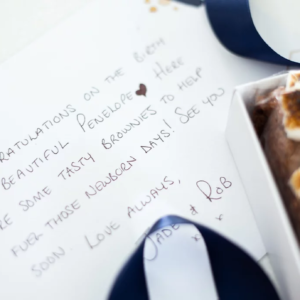 RATULATIONS ON THE BIRTH
BEAUTIFUL PENELOPE♥ HERE
RE SOME TASTY BROWNIES TO HELP
FUEL THOSE NEWBORN DAYS! SEE YOU
SOON. LOVE ALWAYS,
JADE & ROB
x x